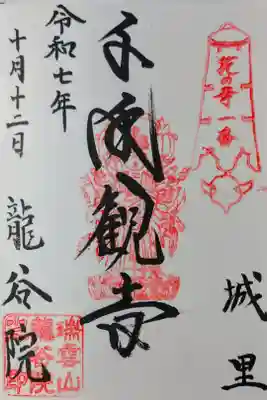 花の寺一番
城里
観音
令和七年
十月十二日
龍谷院
瑞雲山
龍谷院